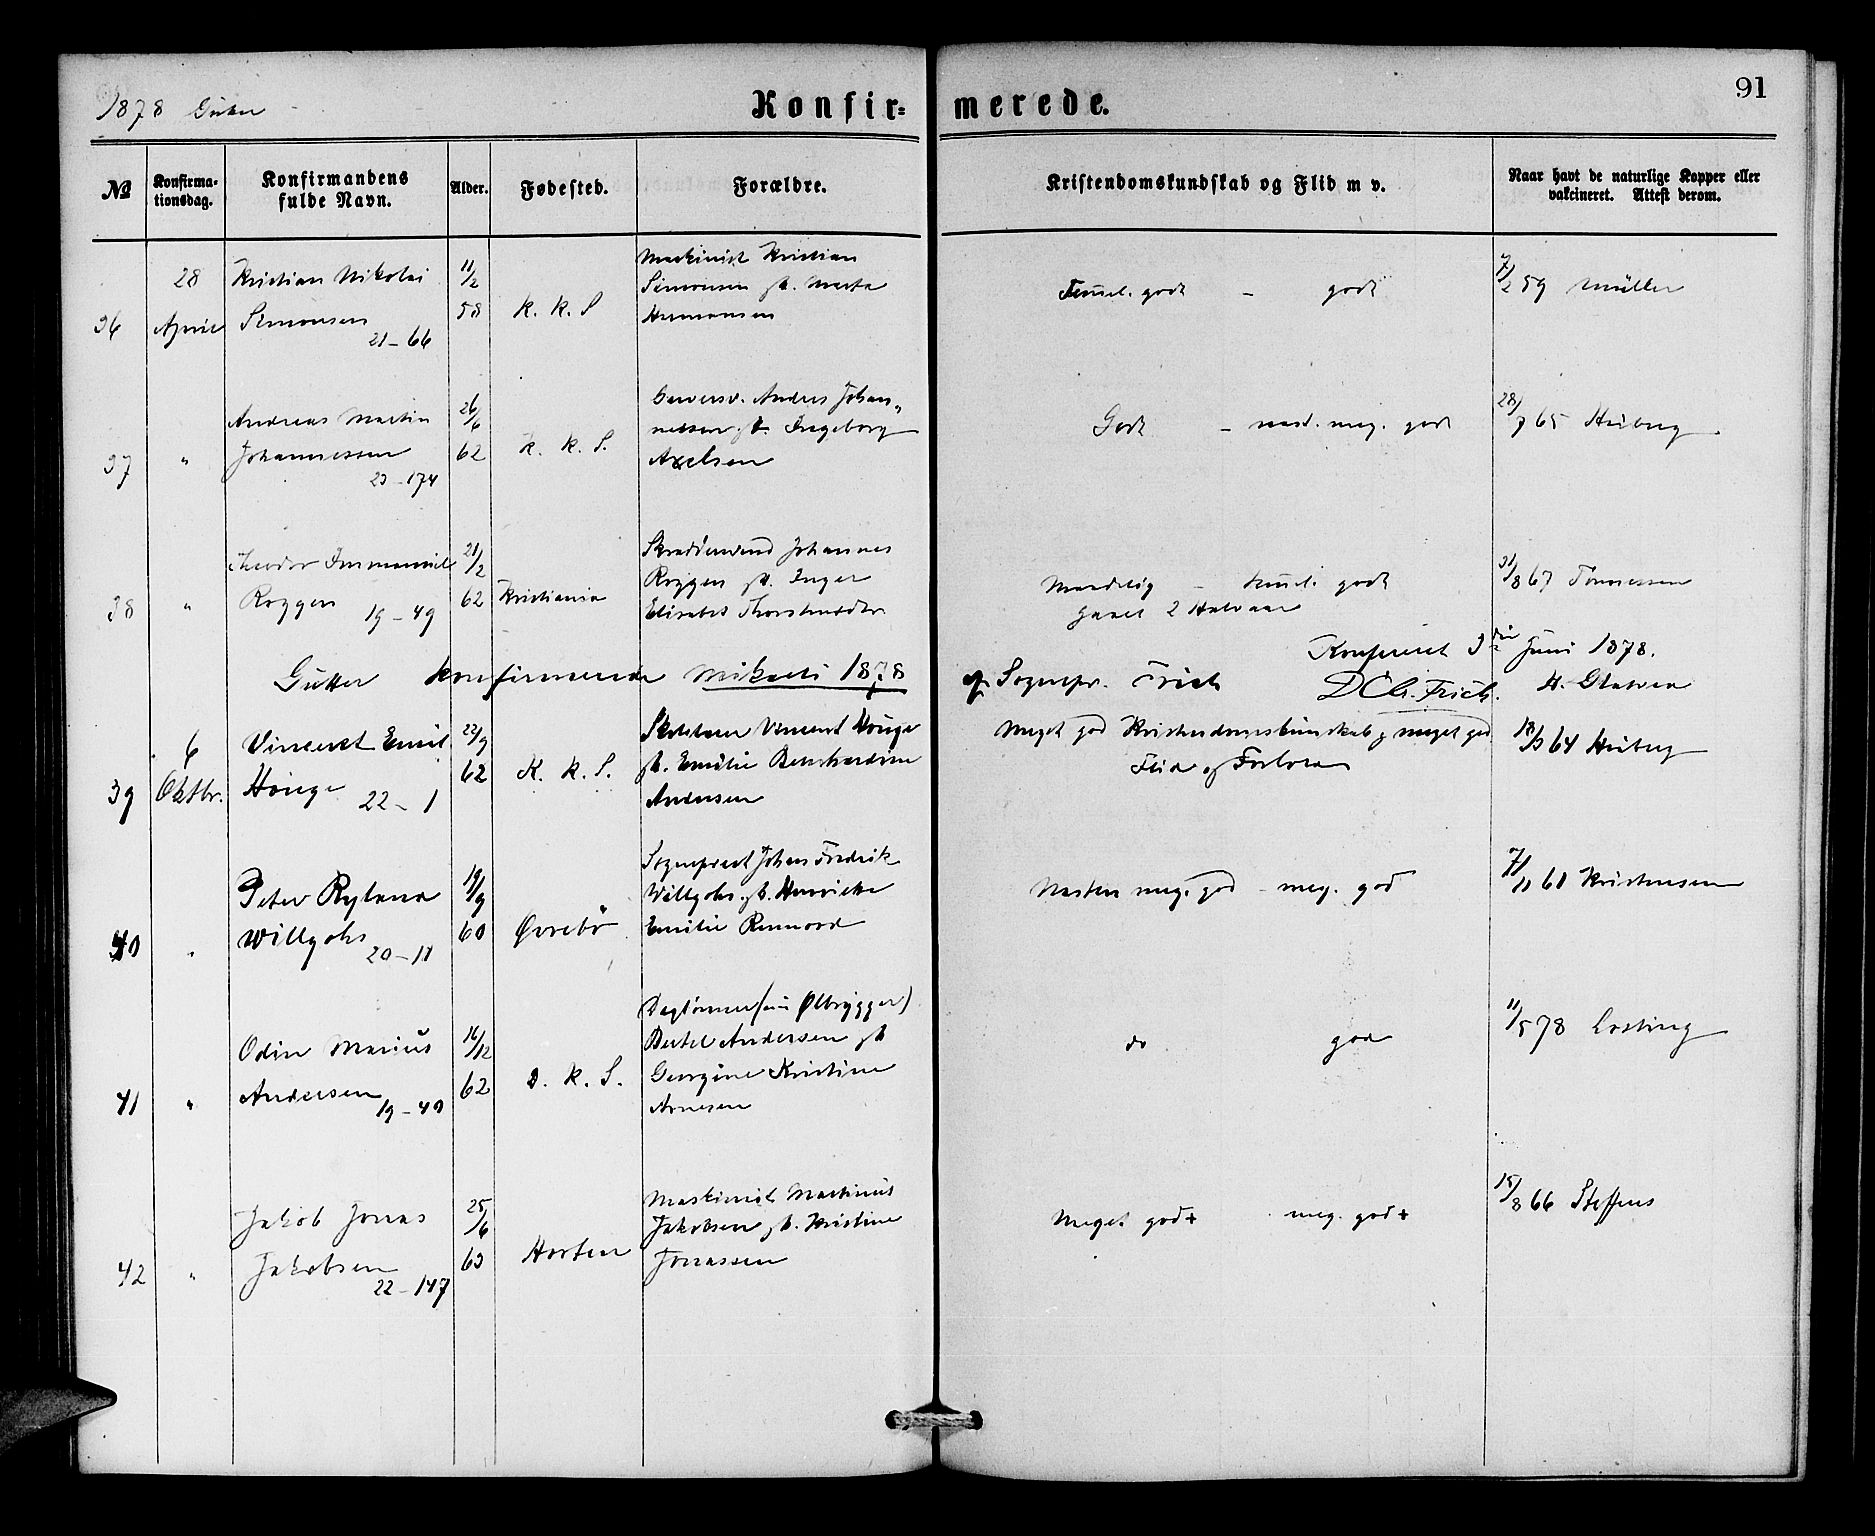 1878 Gutter
Konfir-
merede.
91
№
Konfirma-
tionsdag.
Konfirmandens
fulde Navn.
Alder.
Fødested.
Forældre.
Kristendomskundskab og Flid m v.
Naar havt de naturlige Kopper eller
vakcineret. Attest derom.
36
28
April
Kristian Nikolai
Simonsen
21 – 66
11/2
58
K. K. S
Maskinist Kristian
Simonsen gb. Marta
Hermansen
Temel. godt – godt
7/2 59 Müller
37
"
Andreas Martin
Johannessen
23 – 174
26/6
62
K. K. S.
Anders Johan-
nessen gb. Ingeborg
Axelsen
Godt – næst. meg. godt
28/7 65 Huberg
38
"
Theodor Immanuel
Roggen
19 – 49
21/2
62
Kristiania
Skræddersvend Johannes
Roggen gb. Inger
Elisabet Thorstensdtr
Maadelig – temel. godt
gaaet 2 Halvaar
31/8 67 Tønnessen
Konfereret 3die Juni 1878.
Gutter konfirmerede Mikaeli 1878
af Sognepr. Frich
D Ch. Frich.
39
6
Oktbr.
Vincent Emil
Houge
22 – 1
22/9
62
K. K. S.
Vincent Houge
gb. Emilie Bernhardine
Andersen
Meget god Kristendomskundskab og meget god
Flid og Forhold
64 Huberg
40
"
Peter Ryland
Willgohs
20 – 11
19/9
60
Øvrebø
Sogneprest Johan Fredrik
Willgohs gb. Henrikke
Emilie
Næsten meg. god – meg. god
7/11 61 Kristensen
41
"
Odin Marius
Andersen
19 – 40
16/12
62
D. K. S.
Daglønner (nu Ølbrygger)
Bertel Andersen gb
Georgine Kristine
Arnesen
do god
11/5 78
42
"
Jakob Jonas
Jakobsen
22 – 147
25/6
63
Horten
Maskinist Martinus
Jakobsen gb. Kristine
Jonassen
Meget god+ meg. god+
15/8 66 Steffens